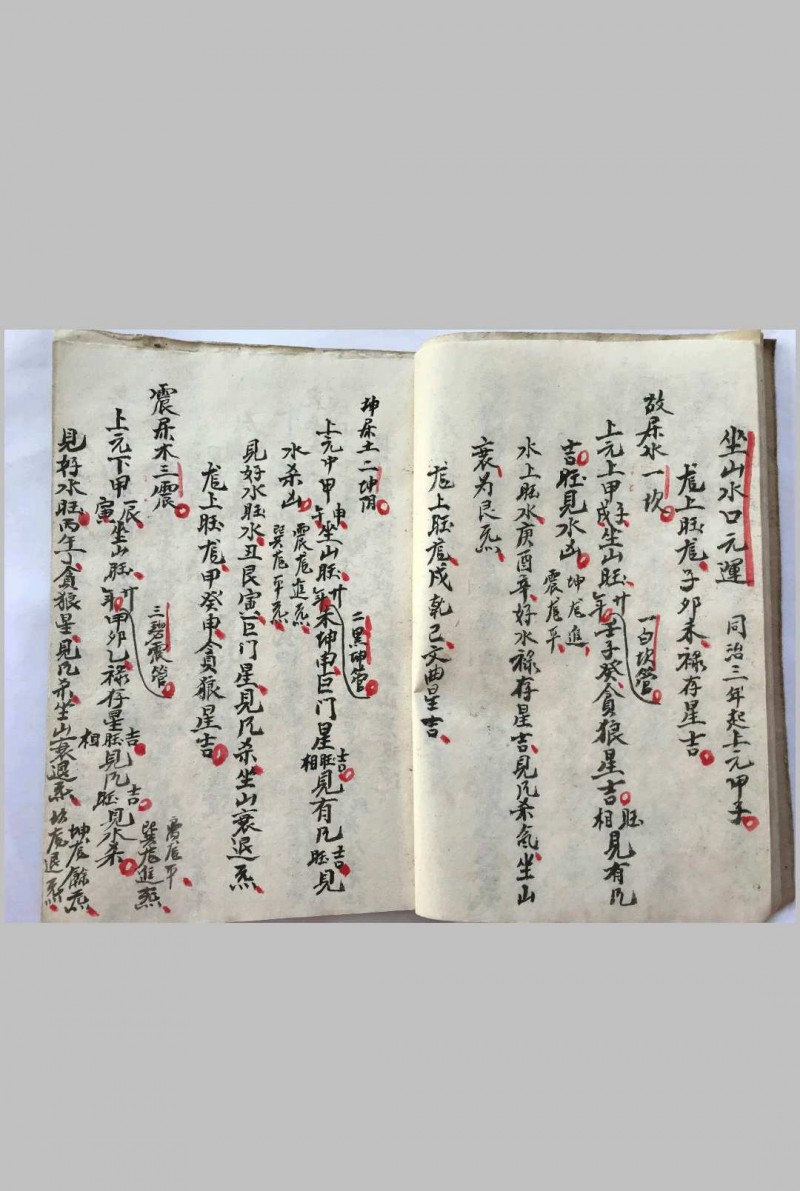 坐山水口元運 同治三年起上元甲子
龙上旺龙子卯未禄存星吉
故屬水一坎 一白坎管
上元上甲子戌坐山旺廿年壬子癸貪狼星吉旺相見有凢
吉旺見水凶 坤龙進 震龙平
水上旺水庚酉辛好水禄存星吉見凢杀氣坐山
衰为艮炁
龙上旺龙戌乾己文曲星吉
坤屬土二坤阴 二黑坤管
上元中甲申午坐山旺廿年未坤申巨门星吉旺相見有凢吉旺見
水杀凶 震龙進炁 巽龙平炁
見好水旺水丑艮寅巨门星見凢杀坐山衰退炁
龙上旺龙甲癸申貪狼星吉
震屬木三震 三碧震管
上元下甲辰寅坐山旺廿年甲卯乙禄存星旺吉相見凢吉旺見水杀 巽龙進炁
見好水旺丙午丁貪狼星見凢杀坐山衰退炁 坎龙退炁 坤龙餘炁